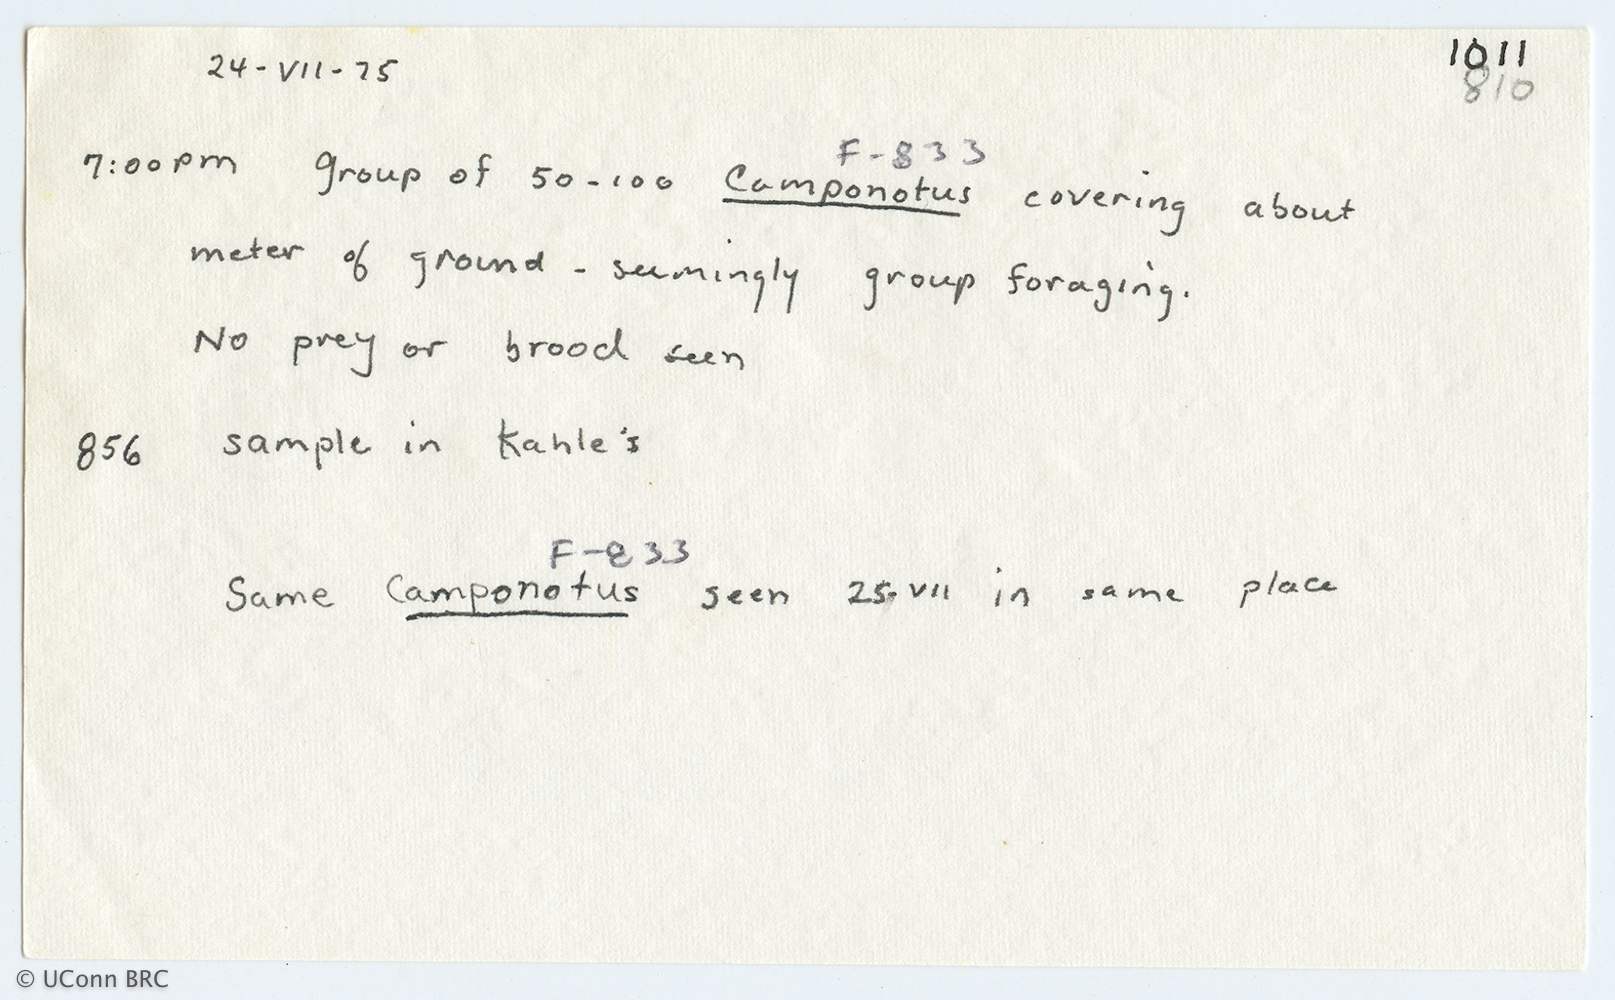 24-VII-75
1011
810
F-833
7:00pm group of 50-100 Camponotus covering about
meter of ground - seemingly group foraging.
No prey or brood seen
856 sample in Kahle's
F-833
Same Camponotus seen 25.VII in same place
© UConn BRC